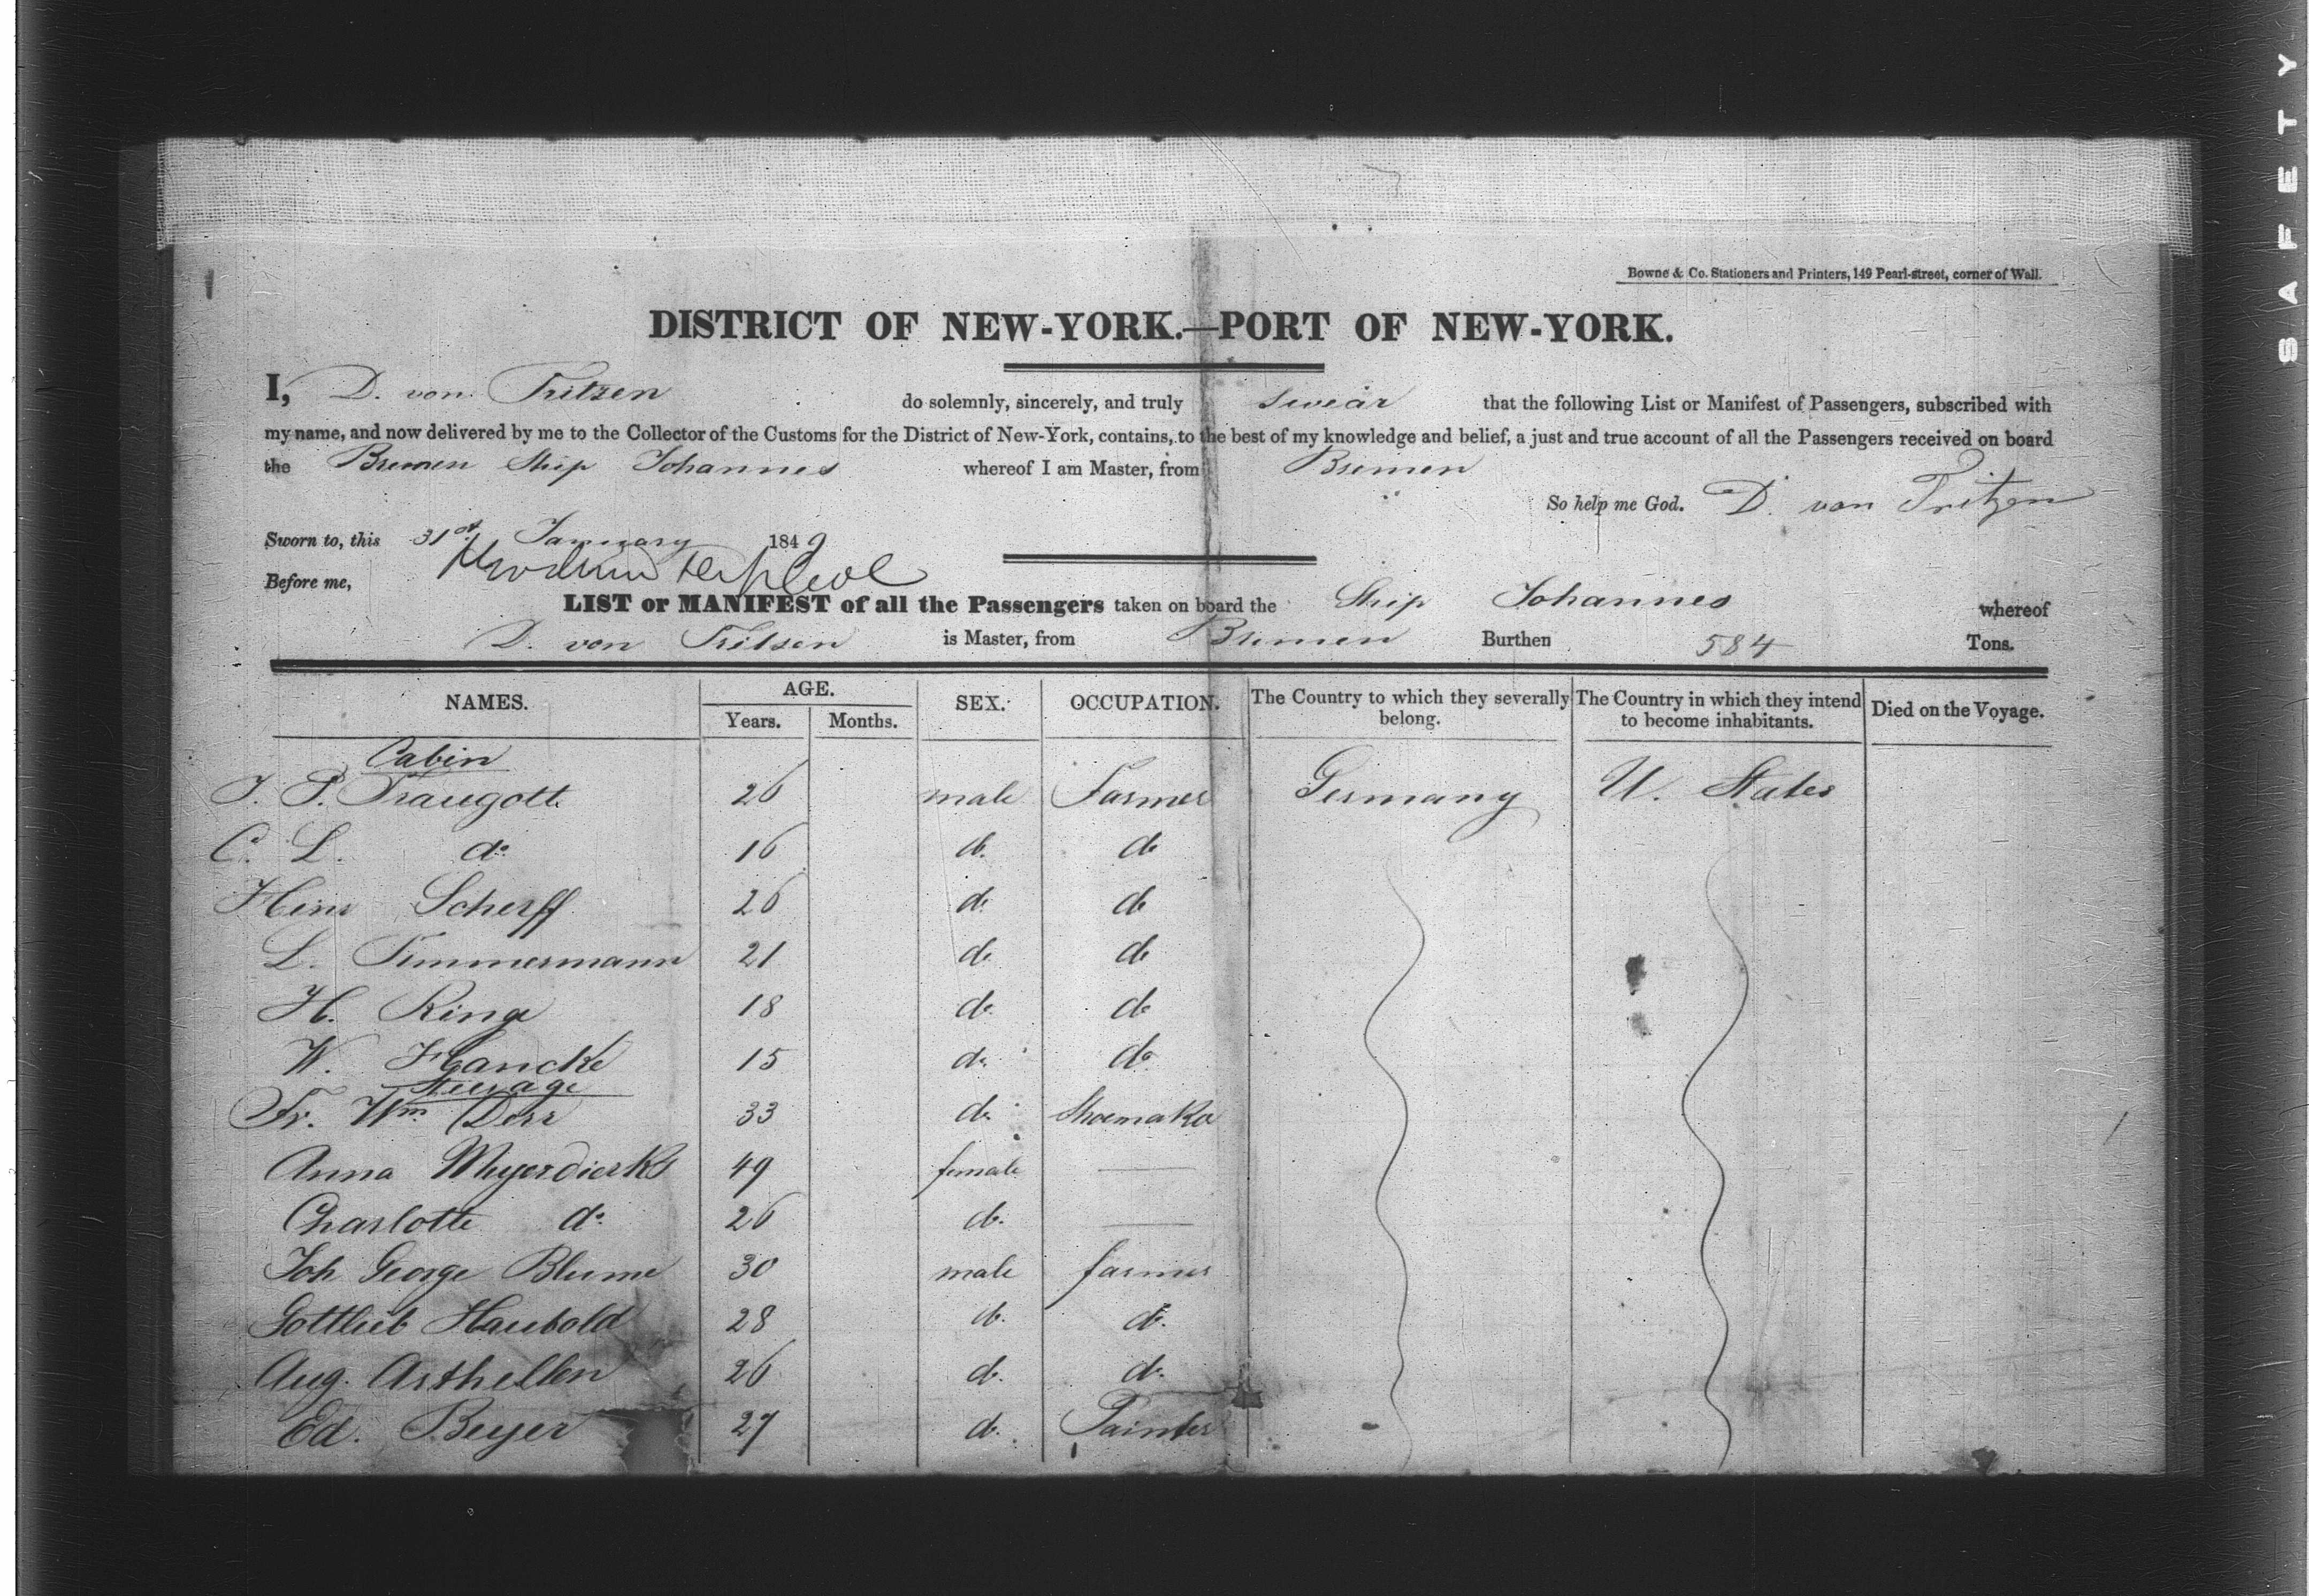 SAFETY
Bowne & Co. Stationers and Printers, 149 Pearl-street, corner of Wall.
DISTRICT OF NEW-YORK.—PORT OF NEW-YORK.
I, D. von Tritzen do solemnly, sincerely, and truly swear that the following List or Manifest of Passengers, subscribed with
my name, and now delivered by me to the Collector of the Customs for the District of New-York, contains, to the best of my knowledge and belief, a just and true account of all the Passengers received on board
the Bremen Ship Johannes whereof I am Master, from Bremen
So help me God. D. von Tritzen
Sworn to, this 31st January 1849
Before me,
LIST or MANIFEST of all the Passengers taken on board the Ship Johannes whereof
D. von Tritzen is Master, from Bremen Burthen 584 Tons.
NAMES. AGE. Years. Months. SEX. OCCUPATION. The Country to which they severally belong. The Country in which they intend to become inhabitants. Died on the Voyage.
Cabin
J. P. Traugott 26 male Farmer Germany U. States
C. L. do 16 do. do
Heinr Scherff 26 do. do
L. Timmermann 21 do. do
H. Ringe 18 do. do
W. Hancke 15 do. do
Steerage
Fr. Wm. Derr 33 do. Shoemaker
Anna Meyerdierks 49 female —
Charlotte do 26 do. —
Joh George Blume 30 male farmer
Gottlieb Haubold 28 do. do.
Aug. Arthellen 26 do. do.
Ed. Beyer 27 do. Painter